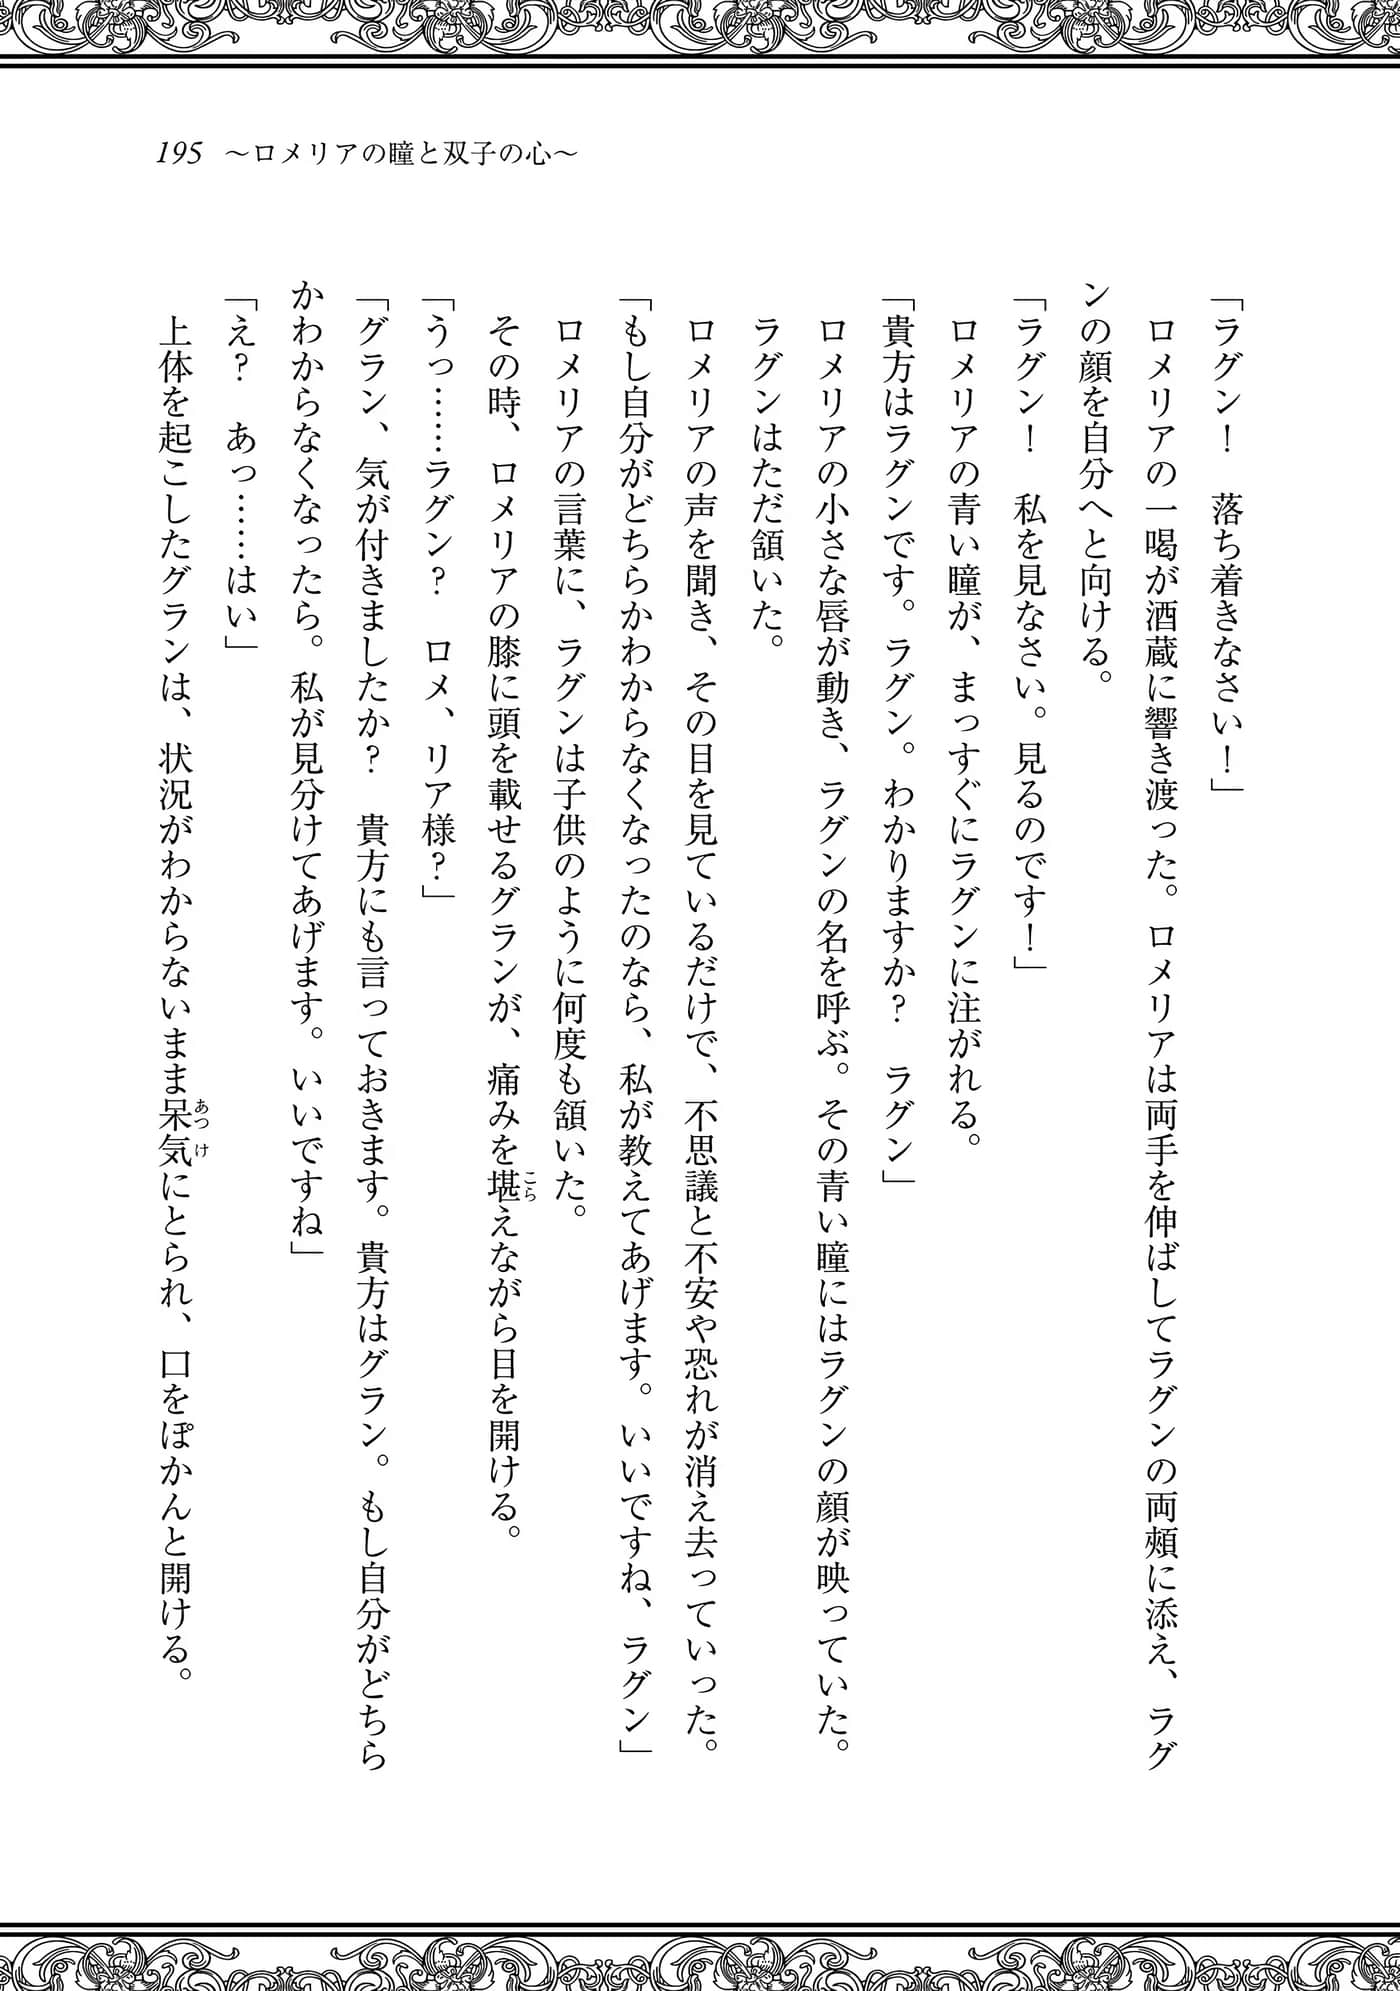 195 ～ロメリアの瞳と双子の心～
「ラグン！　落ち着きなさい！」
　ロメリアの一喝が酒蔵に響き渡った。ロメリアは両手を伸ばしてラグンの両頰に添え、ラグ
ンの顔を自分へと向ける。
「ラグン！　私を見なさい。見るのです！」
　ロメリアの青い瞳が、まっすぐにラグンに注がれる。
「貴方はラグンです。ラグン。わかりますか？　ラグン」
　ロメリアの小さな唇が動き、ラグンの名を呼ぶ。その青い瞳にはラグンの顔が映っていた。
　ラグンはただ頷いた。
　ロメリアの声を聞き、その目を見ているだけで、不思議と不安や恐れが消え去っていった。
「もし自分がどちらかわからなくなったのなら、私が教えてあげます。いいですね、ラグン」
　ロメリアの言葉に、ラグンは子供のように何度も頷いた。
　その時、ロメリアの膝に頭を載せるグランが、痛みを堪えながら目を開ける。
こら
「うっ……ラグン？　ロメ、リア様？」
「グラン、気が付きましたか？　貴方にも言っておきます。貴方はグラン。もし自分がどちら
かわからなくなったら。私が見分けてあげます。いいですね」
「え？　あっ……はい」
　上体を起こしたグランは、状況がわからないまま呆気にとられ、口をぽかんと開ける。
あっけ